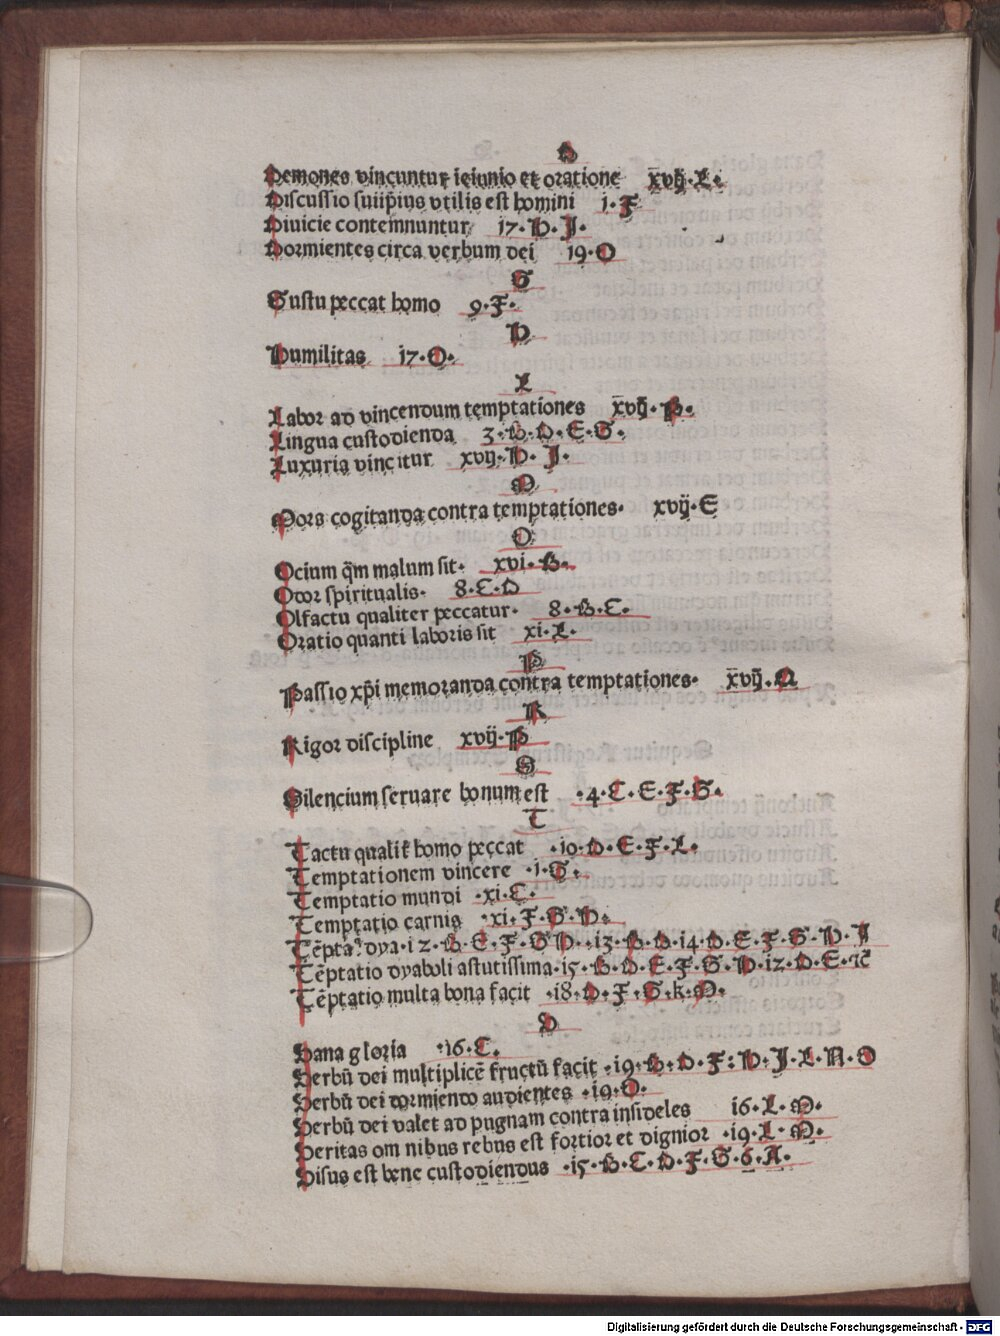 D
Demones vincuntur ieiunio et oratione xvij·L·
Discussio suiip̄ius vtilis est homini i·F
Diuicie contemnuntur 17·H·J·
Dormientes circa verbum dei 19·O
G
Gustu peccat homo 9·F·
H
Humilitas 17·O·
L
Labor ad vincendum temptationes xvij·P·
Lingua custodienda 3·B·D·E·G·
Luxuria vincitur xvij·H·J·
M
Mors cogitanda contra temptationes· xvij·E
O
Ocium q̄m malum sit· xvi·B·
Odor spiritualis· 8·C·D
Olfactu qualiter peccatur· 8·B·C·
Oratio quanti laboris sit xi·L·
P
Passio xp̄i memoranda contra temptationes· xvij·M
R
Rigor discipline xvij·P
S
Silencium seruare bonum est ·4·C·E·F·G·
T
Tactu qualit̄ homo peccat ·10·D·E·F·L·
Temptationem vincere ·i·G·
Temptatio mundi ·xi·C·
Temptatio carnis ·xi·F·G·H·
Tēpta· dya·12·B·E·F·G·H··13·B·D·14·D·E·F·G·H·J
Tēptatio dyaboli astutissima·15·B·D·E·F·G·H·12·D·E·⁊c̄
Tēptatio multa bona facit ·18·D·F·G·k·M·
V
Vana gloria ·16·C·
Verbū dei multiplicē fructū facit ·19·B·D·F·H·J·L·N·O
Verbū dei dormiendo audientes ·19·O·
Verbū dei valet ad pugnam contra infideles 16·L·M·
Veritas om nibus rebus est fortior et dignior ·19·L·M·
Visus est bene custodiendus ·15·B·C·D·F·G·6·A·
Digitalisierung gefördert durch die Deutsche Forschungsgemeinschaft - DFG